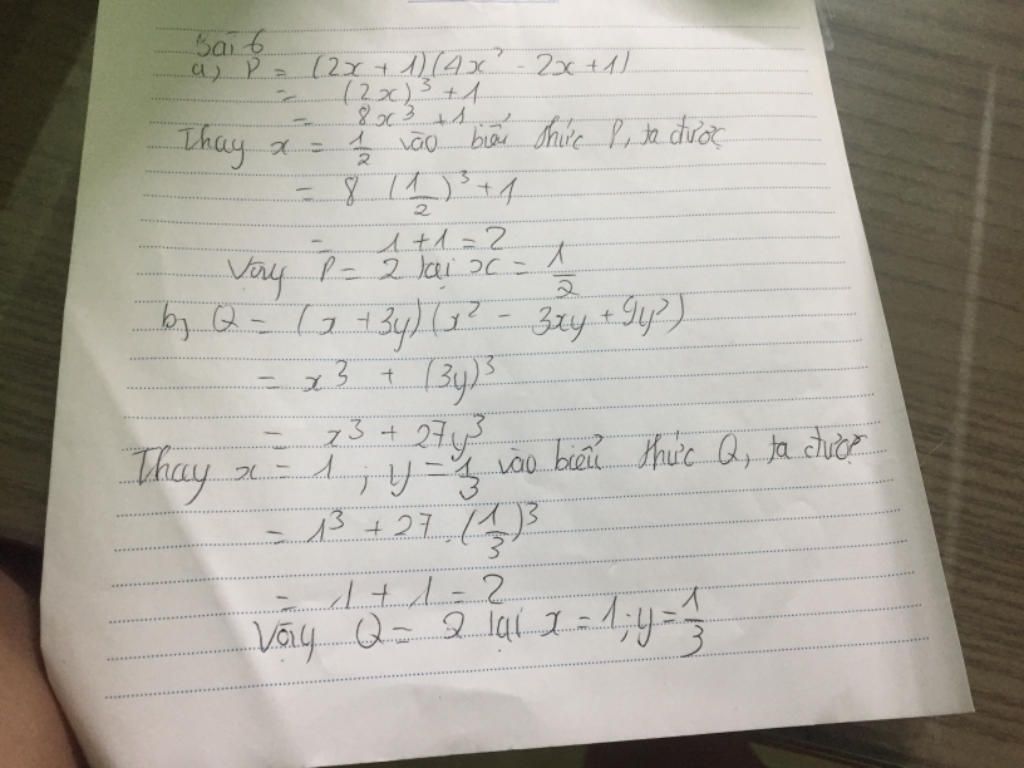 Bài 6
a, P = (2x + 1)(4x² - 2x + 1)
= (2x)³ + 1
= 8x³ + 1
Thay x = 1/2 vào biểu thức P, ta được
= 8 (1/2)³ + 1
= 1 + 1 = 2
Vậy P = 2 tại x = 1/2
b, Q = (x + 3y)(x² - 3xy + 9y²)
= x³ + (3y)³
= x³ + 27y³
Thay x = 1 ; y = 1/3 vào biểu thức Q, ta được
= 1³ + 27 . (1/3)³
= 1 + 1 = 2
Vậy Q = 2 tại x = 1 ; y = 1/3